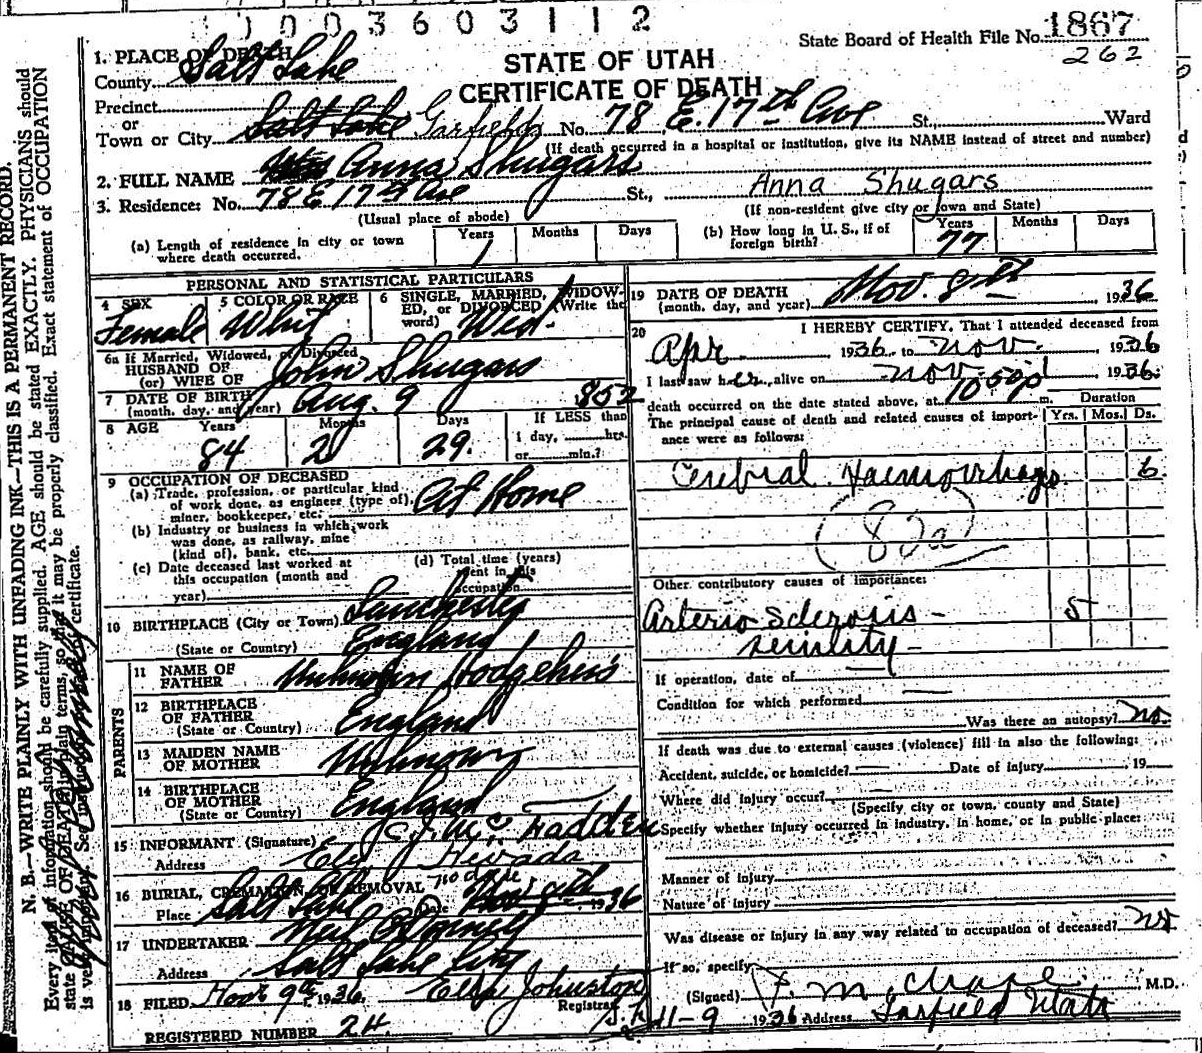 0 0 0 3 6 0 3 1 1 2
State Board of Health File No. 1867
262
STATE OF UTAH
CERTIFICATE OF DEATH
1. PLACE OF DEATH
County Salt Lake
Precinct
or
Town or City Salt Lake Garfield No. 78 E. 17th Ave St, Ward
(If death occurred in a hospital or institution, give its NAME instead of street and number)
2. FULL NAME Mrs Anna Shugars
Anna Shugars
3. Residence: No. 78 E 17th Ave St.,
(Usual place of abode)
(If non-resident give city or town and State)
(a) Length of residence in city or town where death occurred. Years 1 Months Days
(b) How long in U. S., if of foreign birth? Years 77 Months Days
PERSONAL AND STATISTICAL PARTICULARS
4 SEX Female
5 COLOR OR RACE Whit
6 SINGLE, MARRIED, WIDOWED, or DIVORCED (Write the word) Wed.
6a If Married, Widowed, or Divorced
HUSBAND OF
(or) WIFE OF John Shugars
7 DATE OF BIRTH
(month, day, and year) Aug. 9 852
8 AGE Years 84 Months 2 Days 29.
If LESS than
1 day, hrs.
or min.?
9 OCCUPATION OF DECEASED
(a) Trade, profession, or particular kind of work done, as engineer (type of), miner, bookkeeper, etc. At Home
(b) Industry or business in which work was done, as railway, mine (kind of), bank, etc.
(c) Date deceased last worked at this occupation (month and year)
(d) Total time (years) spent in this occupation
10 BIRTHPLACE (City or Town)
(State or Country) England
PARENTS
11 NAME OF FATHER Unknown Hodgekins
12 BIRTHPLACE OF FATHER
(State or Country) England
13 MAIDEN NAME OF MOTHER Unknown
14 BIRTHPLACE OF MOTHER
(State or Country) England
15 INFORMANT (Signature) C. J. Mc Fadden
Address Ely Nevada
16 BURIAL, CREMATION, OR REMOVAL no date
Place Salt Lake Date 1936
17 UNDERTAKER Neil O'Donnell
Address Salt Lake City
18 FILED Nov 9th, 1936 Johnston
Registrar
REGISTERED NUMBER 24.
19 DATE OF DEATH
(month, day, and year) Nov. 8th 1936
20 I HEREBY CERTIFY, That I attended deceased from
Apr 1936 to Nov. 1936
I last saw her alive on Nov. 1936.
death occurred on the date stated above, at 10 50 p m.
The principal cause of death and related causes of importance were as follows:
Duration
Yrs. Mos. Ds.
Cerebral Haemorrhage 6
(82a)
Other contributory causes of importance:
Arterio Sclerosis - 5
senility -
If operation, date of
Condition for which performed
Was there an autopsy? no.
If death was due to external causes (violence) fill in also the following:
Accident, suicide, or homicide? Date of injury 19
Where did injury occur?
(Specify city or town, county and State)
Specify whether injury occurred in industry, in home, or in public place:
Manner of injury
Nature of injury
Was disease or injury in any way related to occupation of deceased? no
If so, specify
(Signed) F. M. M.D.
11-9 1936 Address Garfield Utah
N. B.—WRITE PLAINLY WITH UNFADING INK—THIS IS A PERMANENT RECORD.
Every item of information should be carefully supplied. AGE should be stated EXACTLY. PHYSICIANS should
state CAUSE OF DEATH in plain terms, so that it may be properly classified. Exact statement of OCCUPATION
is very important. See certificate.